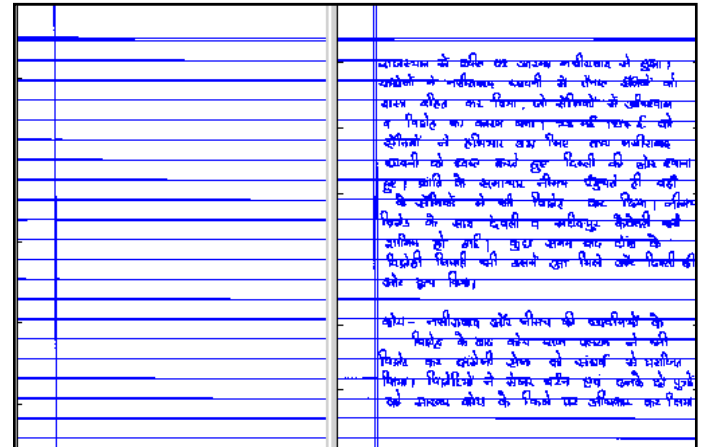 राजस्थान में क्रांति का आरम्भ नसीराबाद से हुआ।
अंग्रेजों ने नसीराबाद छावनी में तैनात सैनिकों को
शस्त्र रहित कर दिया, जो सैनिकों में अविश्वास
व विद्रोह का कारण बना। 28 मई 1857 ई. को
सैनिकों ने हथियार उठा लिए तथा नसीराबाद
छावनी को ध्वस्त करते हुए दिल्ली की ओर रवाना
हुए। क्रांति के समाचार नीमच पहुंचते ही वहाँ
के सैनिकों ने भी विद्रोह कर दिया। नीमच
विद्रोह के साथ देवली व
शामिल हो गई। कुछ समय बाद टोंक के
विद्रोही सिपाही भी उसमें मिले और दिल्ली की
ओर कूच किया।
कोटा- नसीराबाद और नीमच की छावनियों के
विद्रोह के बाद कोटा पलटन ने भी
विद्रोह कर अंग्रेजी सेना को संघर्ष में पराजित
किया। विद्रोहियों ने मेजर बर्टन एवं उनके दो पुत्रों
को कोटा के किले पर अधिकार कर लिया